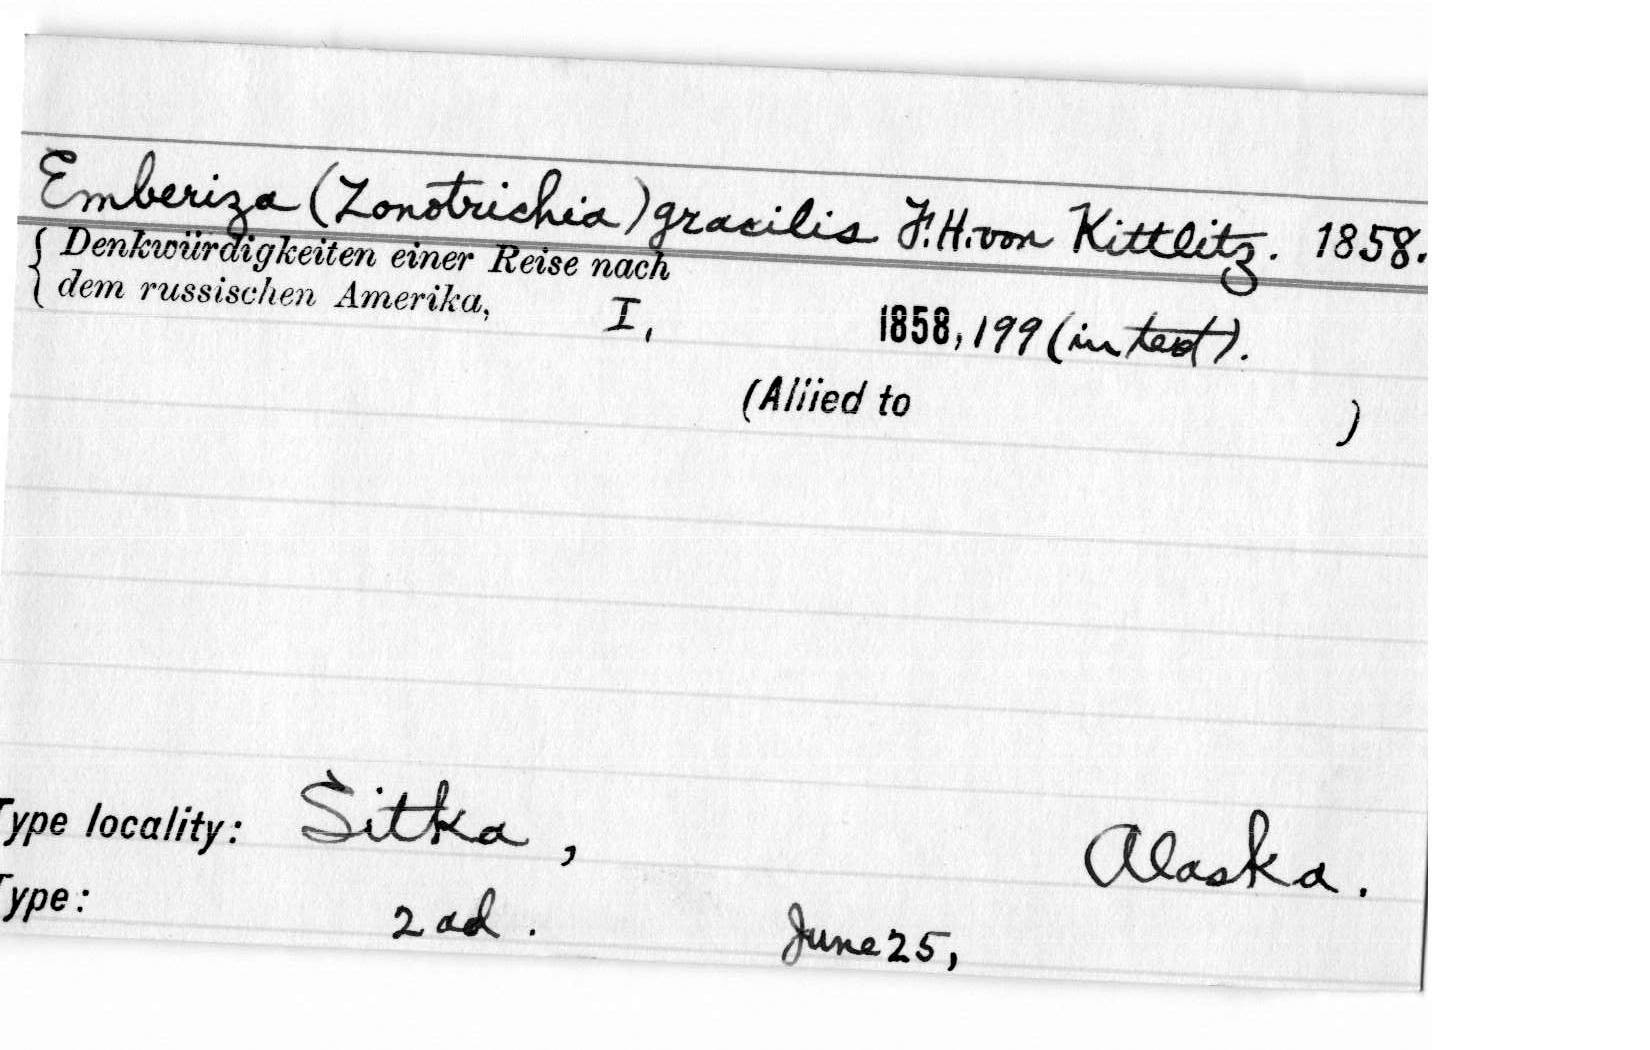 Emberiza (Zonotrichia) gracilis F. H. von Kittlitz. 1858.
Denkwürdigkeiten einer Reise nach
dem russischen Amerika, I, 1858, 199 (in text).
(Allied to )
Type locality: Sitka, Alaska.
Type: 2 ad. June 25,